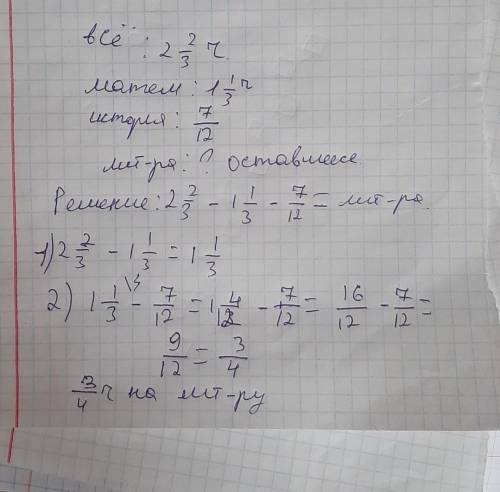 всё : 2 2/3 ч.
матем : 1 1/3 ч
история : 7/12
лит-ра : ? оставшееся
Решение: 2 2/3 - 1 1/3 - 7/12 = лит-ра.
1) 2 2/3 - 1 1/3 = 1 1/3
2) 1 1/3 - 7/12 = 1 4/12 - 7/12 = 16/12 - 7/12 =
9/12 = 3/4
3/4 ч на лит-ру